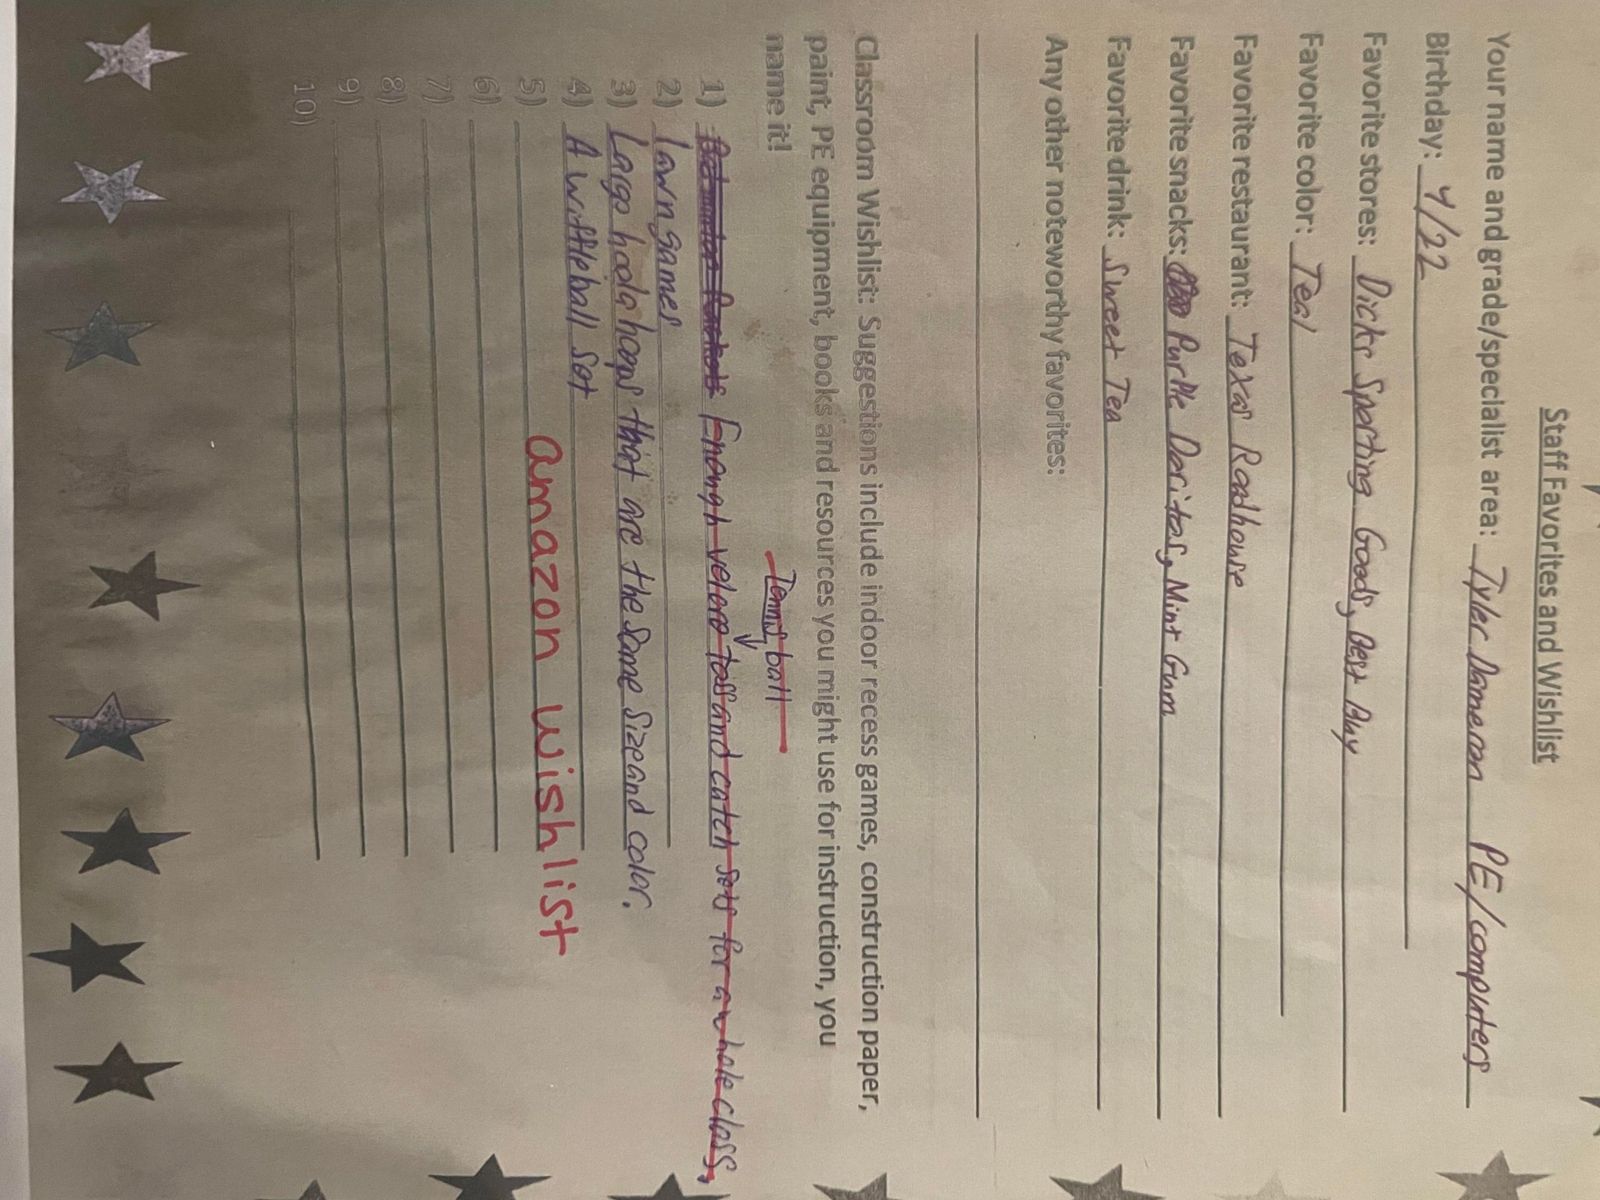 Staff Favorites and Wishlist
Your name and grade/specialist area: Tyler Dameron PE/computers
Birthday: 4/22
Favorite stores: Dicks Sporting Goods, Best Buy
Favorite color: Teal
Favorite restaurant: Texas Roadhouse
Favorite snacks: Purple Doritos, Mint Gum
Favorite drink: Sweet Tea
Any other noteworthy favorites:
Classroom Wishlist: Suggestions include indoor recess games, construction paper,
paint, PE equipment, books and resources you might use for instruction, you
name it!
Tennis ball
1) Enough velcro toss and catch sets for a whole class,
2) lawn games
3) Large hoola hoops that are the same size and color.
4) A wiffleball set
5) amazon wishlist
6)
7)
8)
9)
10)